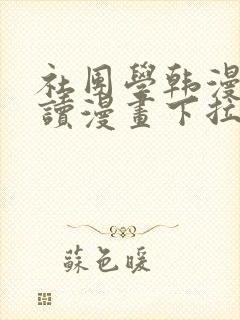 社團學韩漫
讀漫畫下拉
蘇色暖